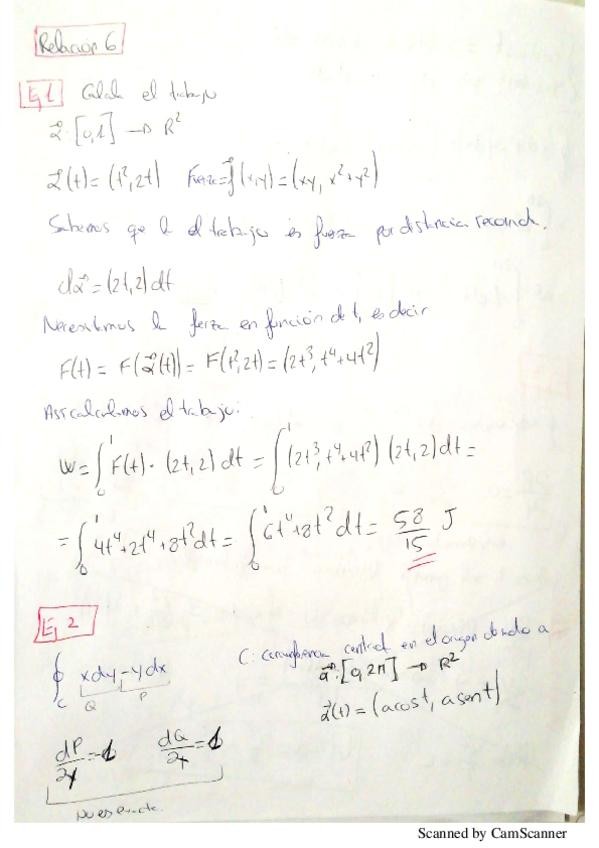 Relación 6
Ej 1 Calcula el trabajo
α⃗: [0,1] → R²
α⃗(t) = (t², 2t) Fuerza = f⃗(x,y) = (xy, x²+y²)
Sabemos que el trabajo es fuerza por distancia recorrida.
dα⃗ = (2t, 2) dt
Necesitamos la fuerza en función de t, es decir
F(t) = F(α⃗(t)) = F(t², 2t) = (2t³, t⁴+4t²)
Así calculamos el trabajo:
W = ∫₀¹ F(t) · (2t, 2) dt = ∫₀¹ (2t³, t⁴+4t²) (2t, 2) dt =
= ∫₀¹ 4t⁴+2t⁴+8t² dt = ∫₀¹ 6t⁴+8t² dt = 58/15 J
Ej 2
C: circunferencia central en el origen de radio a
∮_C xdy - ydx
α⃗: [0, 2π] → R²
Q P
α⃗(t) = (a cos t, a sen t)
dP/2y = -1 dQ/2x = 1
No es exacta.
Scanned by CamScanner